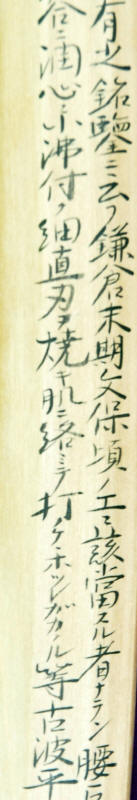 有之銘鑒ニ云フ鎌倉末期文保頃ノ工ニ該當スル者ナラン腰
合ニ潤心ニ小沸付ク細直刃ヲ焼キ肌ニ絡ミテ打ノケホツレガカル等古波平